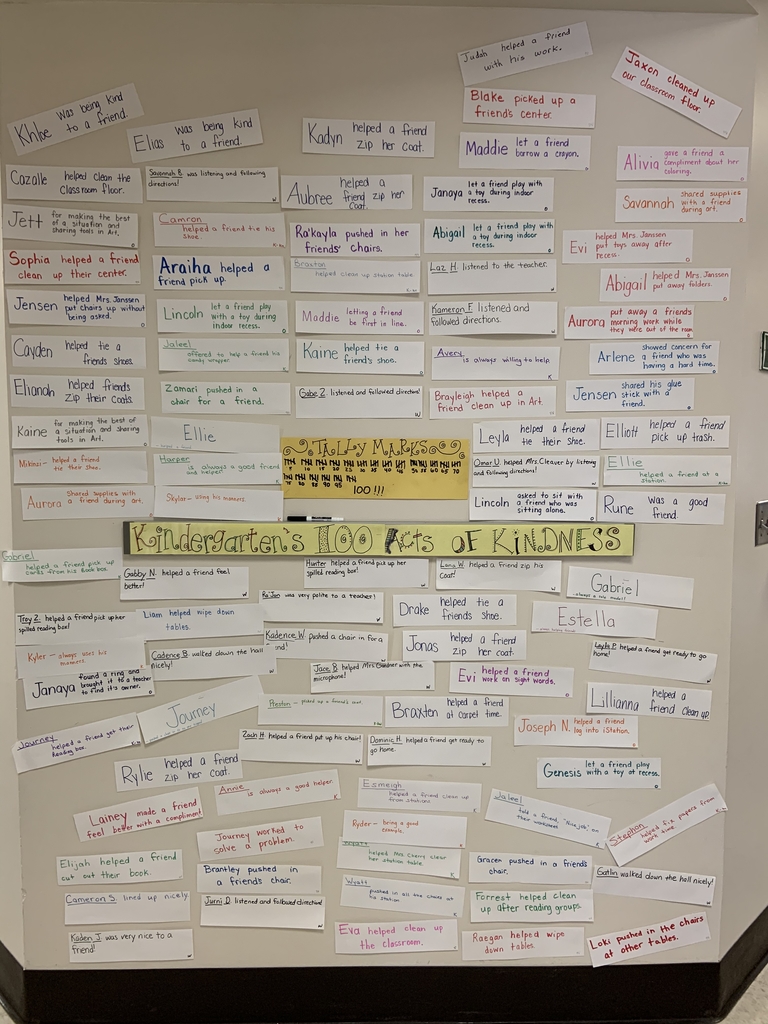 Judah helped a friend
with his work.
Jaxon cleaned up
our classroom floor.
Blake picked up a
friend's center.
Khloe was being kind
to a friend.
Elias was being kind
to a friend.
Kadyn helped a friend
zip her coat.
Maddie let a friend
borrow a crayon.
Alivia gave a friend a
compliment about her
coloring.
Cazalle helped clean the
classroom floor.
Savannah B. was listening and following
directions!
Aubree helped a
friend zip her
coat.
Janaya let a friend play with
a toy during indoor
recess.
Savannah shared supplies
with a friend
during art.
Jett for making the best
of a situation and
sharing tools in Art.
Camron
helped a friend tie his
shoe.
Ra'kayla pushed in her
friends' chairs.
Abigail let a friend play with
a toy during indoor
recess.
Evi helped Mrs. Janssen
put toys away after
recess.
Sophia helped a friend
clean up their center.
Araiha helped a
friend pick up.
Braxton
helped clean up station table.
Laz H. listened to the teacher.
Abigail helped Mrs. Janssen
put away folders.
Jensen helped Mrs. Janssen
put chairs up without
being asked.
Lincoln let a friend play
with a toy during
indoor recess.
Maddie letting a friend
be first in line.
Kameron F. listened and
followed directions.
Aurora put away a friends
morning work while
they were out of the room
Cayden helped tie a
friends shoes.
Jaleel
offered to help a friend his
candy wrapper.
Kaine helped tie a
friend's shoe.
Avery
is always willing to help.
Arlene showed concern for
a friend who was
having a hard time.
Elianah helped friends
zip their coats.
Zamari pushed in a
chair for a friend.
Gabe Z. listened and followed directions!
Brayleigh helped a
friend clean up in Art.
Jensen shared his glue
stick with a
friend.
Kaine for making the best of
a situation and sharing
tools in Art.
Ellie
TALLY MARKS
5 10 15 20 25 30 35 40 45 50 55 60 65 70
75 80 85 90 95
100!!!
Leyla helped a friend
tie their shoe.
Elliott helped a friend
pick up trash.
Mikinzi - helped a friend
tie their shoe.
Harper
is always a good friend
and helper.
Omar U. helped Mrs. Cleaver by listening
and following directions!
Ellie
helped a friend at a
station.
Aurora Shared supplies with
a friend during art.
Skylar - using his manners.
Lincoln asked to sit with
a friend who was
sitting alone.
Rune was a good
friend.
Kindergarten's 100 Acts OF KINDNESS
Gabriel
helped a friend pick up
cards from his book box.
Gabby N. helped a friend feel
better!
Hunter helped a friend pick up her
spilled reading box!
Lana W. helped a friend zip his
coat!
Gabriel
Troy Z. helped a friend pick up her
spilled reading box!
Liam helped wipe down
tables.
Ra'Jon was very polite to a teacher!
Drake helped tie a
friends shoe.
Estella
Kyler - always uses his
manners.
Cadence B. walked down the hall
nicely!
Kadence W. pushed a chair in for a
Jonas helped a friend
zip her coat.
Layla P. helped a friend get ready to go
home!
Janaya found a ring and
brought it to a teacher
to find it's owner.
Jace B. helped Mrs. Gardner with the
microphone!
Evi helped a friend
work on sight words.
Lillianna helped a
friend clean up.
Journey
helped a friend get their
Reading box.
Journey
Preston
Braxten helped a friend
at carpet time.
Joseph N. helped a friend
log into iStation.
Zach H. helped a friend put up his chair!
Dominic H. helped a friend get ready to
go home.
Rylie helped a friend
zip her coat.
Genesis let a friend play
with a toy at recess.
Annie
is always a good helper.
Esmeigh
helped a friend clean up
from stations.
Jaleel
told a friend, "Nice job" on
their worksheet
Stephon
helped fix papers from
work time.
Lainey made a friend
feel better with a compliment!
Journey worked to
solve a problem.
Ryder - being a good
example.
Wyatt
helped Mrs Cherry clear
her station table.
Elijah helped a friend
cut out their book.
Brantley pushed in
a friend's chair.
Gracen pushed in a friend's
chair.
Gatlin walked down the hall nicely!
Cameron S. lined up nicely.
Jurni D. listened and followed directions!
Wyatt
pushed in all the chairs at
his station.
Forrest helped clean
up after reading groups.
Kaden J. was very nice to a
friend!
Eva helped clean up
the classroom.
Raegan helped wipe
down tables.
Loki pushed in the chairs
at other tables.